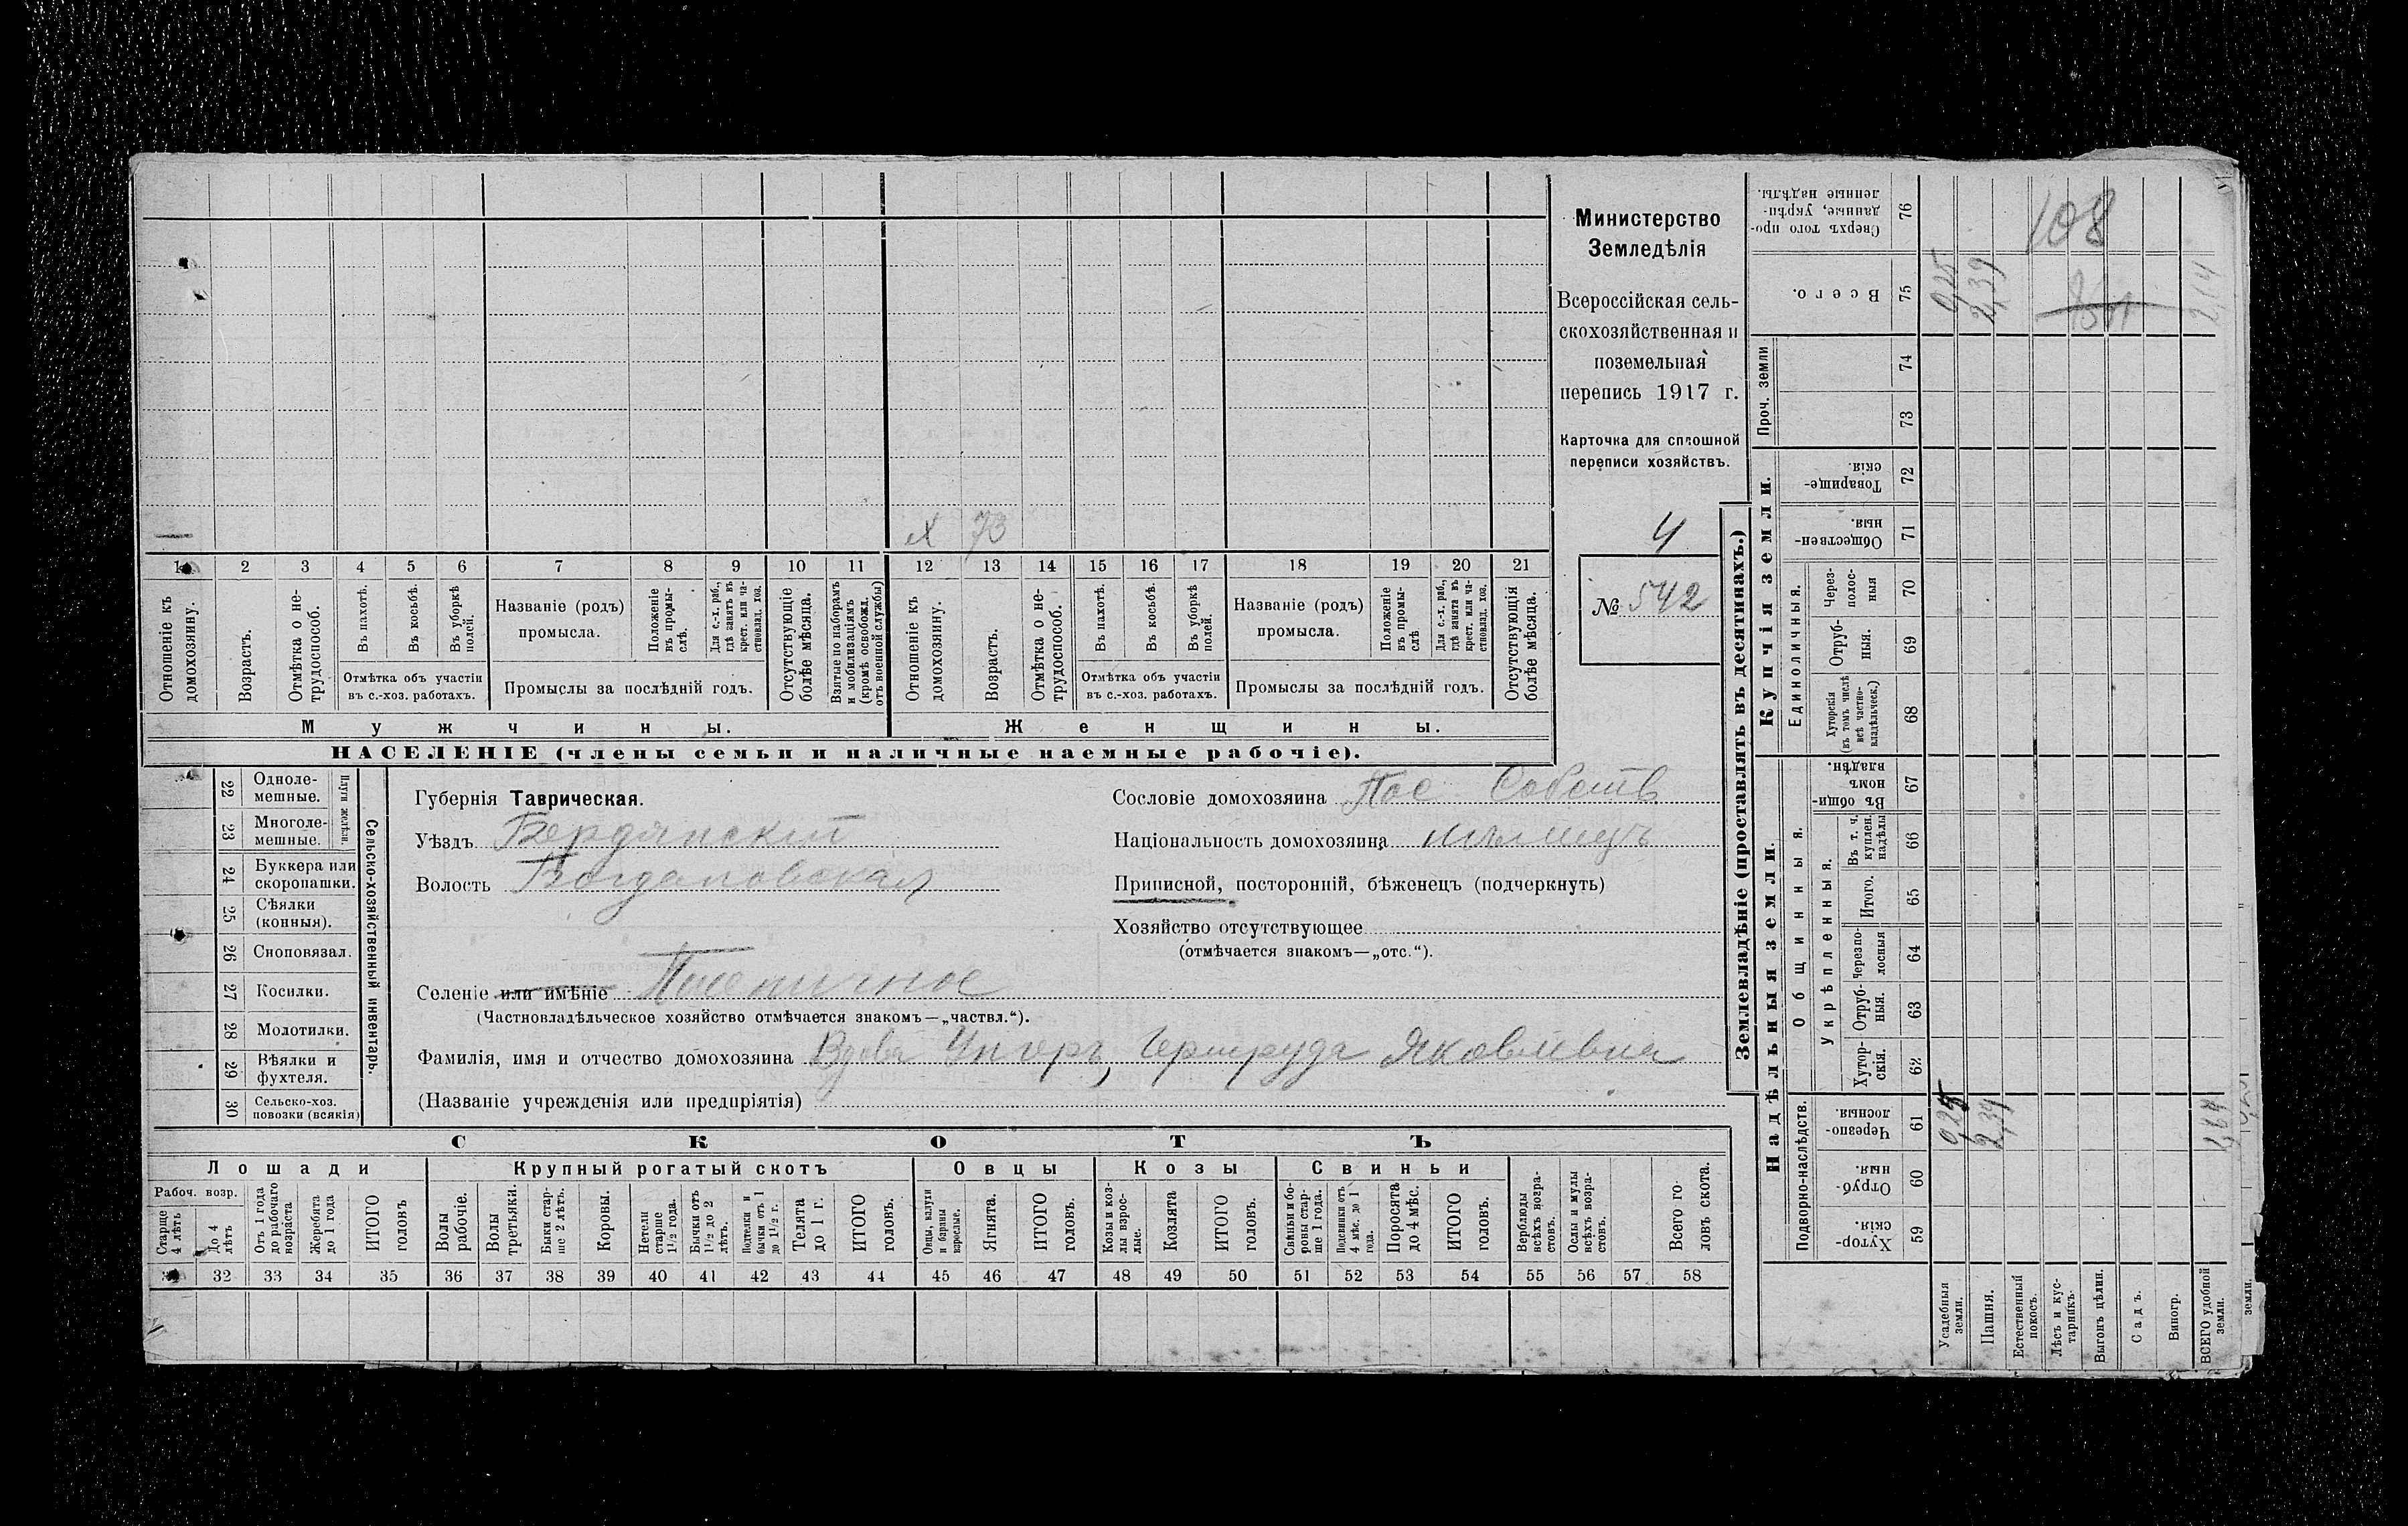 Министерство
Земледѣлія
Всероссійская сель-
скохозяйственная и
поземельная
перепись 1917 г.
Карточка для сплошной
переписи хозяйствъ.
4
№ 542
х 73
1 2 3 4 5 6 7 8 9 10 11 12 13 14 15 16 17 18 19 20 21
Отношеніе къ домохозяину.
Возрастъ.
Отмѣтка о не-трудоспособ.
Въ пахотѣ.
Въ косьбѣ.
Въ уборкѣ полей.
Отмѣтка объ участіи
въ с.-хоз. работахъ.
Названіе (родъ)
промысла.
Положеніе въ промы-слѣ.
Для с.-х. раб., гдѣ занятъ въ крест. или ча-стновлад. хоз.
Промыслы за послѣдній годъ.
Отсутствующіе болѣе мѣсяца.
Взятые по наборамъ и мобилизаціямъ (кромѣ освобожд. отъ военной службы)
Отношеніе къ домохозяину.
Возрастъ.
Отмѣтка о не-трудоспособ.
Въ пахотѣ.
Въ косьбѣ.
Въ уборкѣ полей.
Отмѣтка объ участіи
въ с.-хоз. работахъ.
Названіе (родъ)
промысла.
Положеніе въ промы-слѣ
Для с.-х. раб., гдѣ занята въ крест. или ча-стновлад. хоз.
Промыслы за послѣдній годъ.
Отсутствующія болѣе мѣсяца.
Мужчины.
Женщины.
НАСЕЛЕНІЕ (члены семьи и наличные наемные рабочіе).
22 Одноле-мешные.
23 Многоле-мешные.
Плуги желѣзн.
24 Буккера или скоропашки.
25 Сѣялки (конныя).
26 Сноповязал.
27 Косилки.
28 Молотилки.
29 Вѣялки и фухтеля.
30 Сельско-хоз. повозки (всякія)
Сельско-хозяйственный инвентарь.
Губернія Таврическая.
Уѣздъ Бердянскій
Волость Богдановская
Селеніе или имѣніе
(Частновладѣльческое хозяйство отмѣчается знакомъ—„частвл.“).
Фамилія, имя и отчество домохозяина Вдова Унгеръ, Гертруда Яковлевна
(Названіе учрежденія или предпріятія)
Сословіе домохозяина Пос Собств
Національность домохозяина нѣмецъ
Приписной, посторонній, бѣженецъ (подчеркнуть)
Хозяйство отсутствующее
(отмѣчается знакомъ—„отс.“).
СКОТЪ
Лошади
Крупный рогатый скотъ
Овцы
Козы
Свиньи
Рабоч. возр.
Старше 4 лѣтъ
До 4 лѣтъ
Отъ 1 года до рабочаго возраста
Жеребята до 1 года
ИТОГО головъ
Волы рабочіе.
Волы третьяки.
Быки стар-ше 2 лѣтъ.
Коровы.
Нетели старше 1 1/2 года.
Бычки отъ 1 1/2 до 2 лѣтъ.
Подтелки и бычки отъ 1 до 1 1/2 г.
Телята до 1 г.
ИТОГО головъ.
Овцы, валухи и бараны взрослые.
Ягнята.
ИТОГО головъ.
Козы и коз-лы взрос-лые.
Козлята
ИТОГО головъ.
Свиньи и бо-ровы стар-ше 1 года.
Подсвинки отъ 4 мѣс. до 1 года.
Поросята до 4 мѣс.
ИТОГО головъ.
Верблюды всѣхъ возра-стовъ.
Ослы и мулы всѣхъ возра-стовъ.
Всего го-ловъ скота.
32 33 34 35 36 37 38 39 40 41 42 43 44 45 46 47 48 49 50 51 52 53 54 55 56 57 58
Землевладѣніе (проставлять въ десятинахъ.)
Надѣльныя земли.
Купчія земли.
Проч. земли
Подворно-наслѣдств.
Общинныя.
Укрѣпленныя.
Единоличныя.
Хутор-скія. 59
Отруб-ныя. 60
Черезпо-лосныя. 61
Хутор-скія. 62
Отруб-ныя. 63
Черезпо-лосныя 64
Итого. 65
Въ т. ч. куплен. надѣлы 66
Въ общин-номъ владѣн. 67
Хуторскія (въ томъ числѣ всѣ частно-владѣльческ.) 68
Отруб-ныя. 69
Черезполос-ныя 70
Обществен-ныя. 71
Товарище-скія. 72
73
74
Всего. 75
Сверхъ того про-данные, укрѣп-ленные надѣлы. 76
Усадебныя земли.
Пашня.
Естественный покосъ.
Лѣсъ и кус-тарникъ.
Выгонъ цѣлин.
Садъ.
Виногр.
ВСЕГО удобной земли.
земли.
0,25
2,39
108
0,25
2,39
2,64